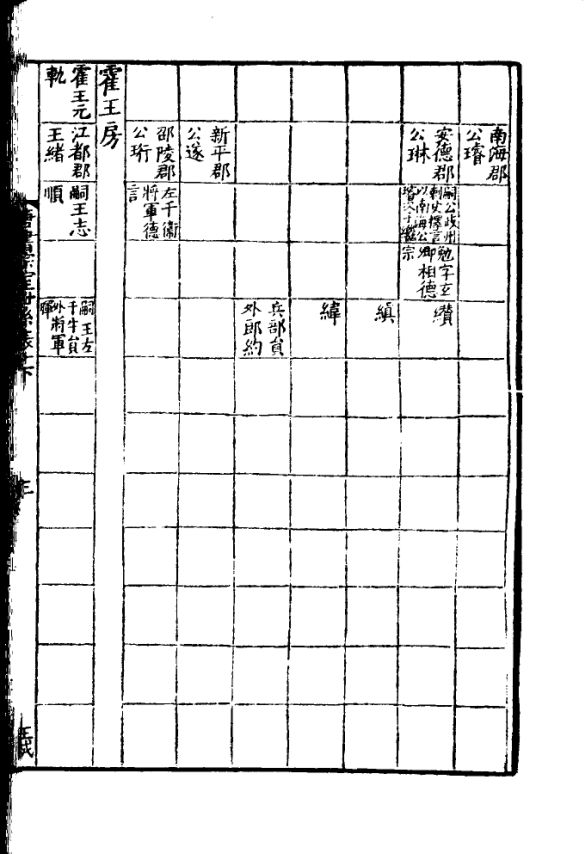 南海郡
公璿
安德郡
公琳
嗣公歧州
刺史擇言
以南海公
子繼
勉字玄
卿相德
宗
纘
縝
緯
兵部員
外郎約
新平郡
公遂
邵陵郡
公珩
左千衞
將軍德
言
霍王房
霍王元
軌
江都郡
王緒
嗣王志
順
嗣王左
千牛員
外將軍
暉